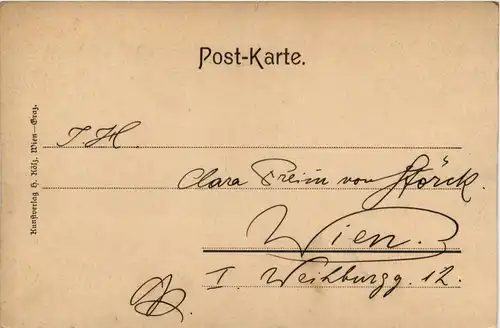 Post-Karte.
I. H.
Clara Freiin von Störck.
Wien.
I. Weihburgg. 12.
Kunstverlag H. Kölz, Wien—Graz.